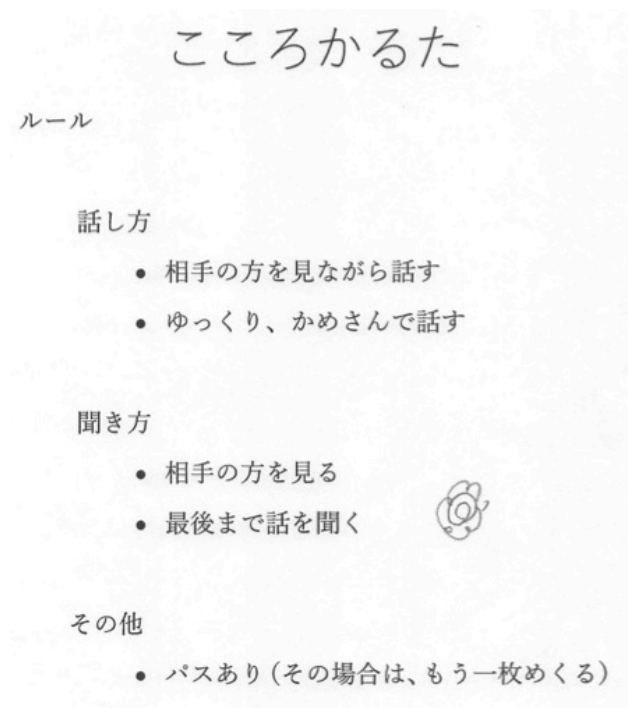 こころかるた
ルール
話し方
• 相手の方を見ながら話す
• ゆっくり、かめさんで話す
聞き方
• 相手の方を見る
• 最後まで話を聞く
その他
• パスあり(その場合は、もう一枚めくる)